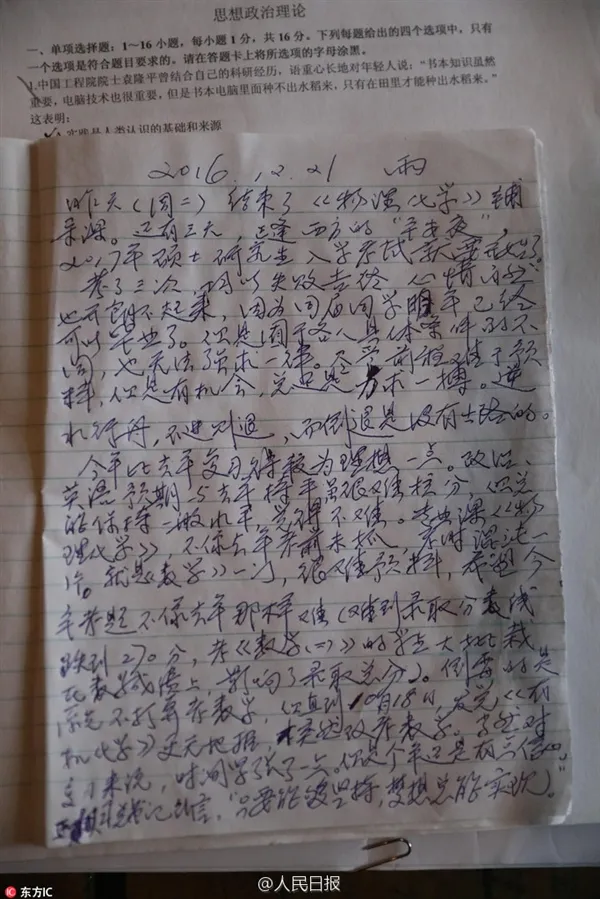 思想政治理论
一、单项选择题：1～16小题，每小题1分，共16分。下列每题给出的四个选项中，只有
一个选项是符合题目要求的。请在答题卡上将所选项的字母涂黑。
1.中国工程院院士袁隆平曾结合自己的科研经历，语重心长地对年轻人说：“书本知识虽然
重要，电脑技术也很重要，但是书本电脑里面种不出水稻来，只有在田里才能种出水稻来。”
这表明：
A.实践是人类认识的基础和来源
2016.12.21 雨
昨天（周二）结束了《物理化学》辅
导课。还有三天，正逢西方的“平安夜”，
2017年硕士研究生入学考试就要开始了。
考了三次，均以失败告终，心情自然
也开朗不起来，因为同届同学明年已经
可以毕业了。但是固于各人具体条件的不
同，也无法强求一律。尽管前程难于预
料，但是有机会，总还是力求一搏。逆
水行舟，不进则退，而倒退是没有出路的。
今年比去年复习得较为理想一点。政治、
英语预期与去年持平虽很难核分，但总
能保持一般水平觉得不难。专业课《物
理化学》，不像去年考前未抓，
就是数学》一门，很难预料，希望今
年考题不像去年那样难（难到录取分数线
跌到270分，考《数学（二）》的学生大批栽
在数学成绩上，影响了录取总分）。倒霉的是
原先不打算考数学，但直到10月18日，发觉《有
机化学》更无把握，改考数学。
来说，时间紧张了一点。但是个年还是有三
总书记的信，“只要能够坚持，梦想总能实现）。”
@人民日报
IC 东方IC